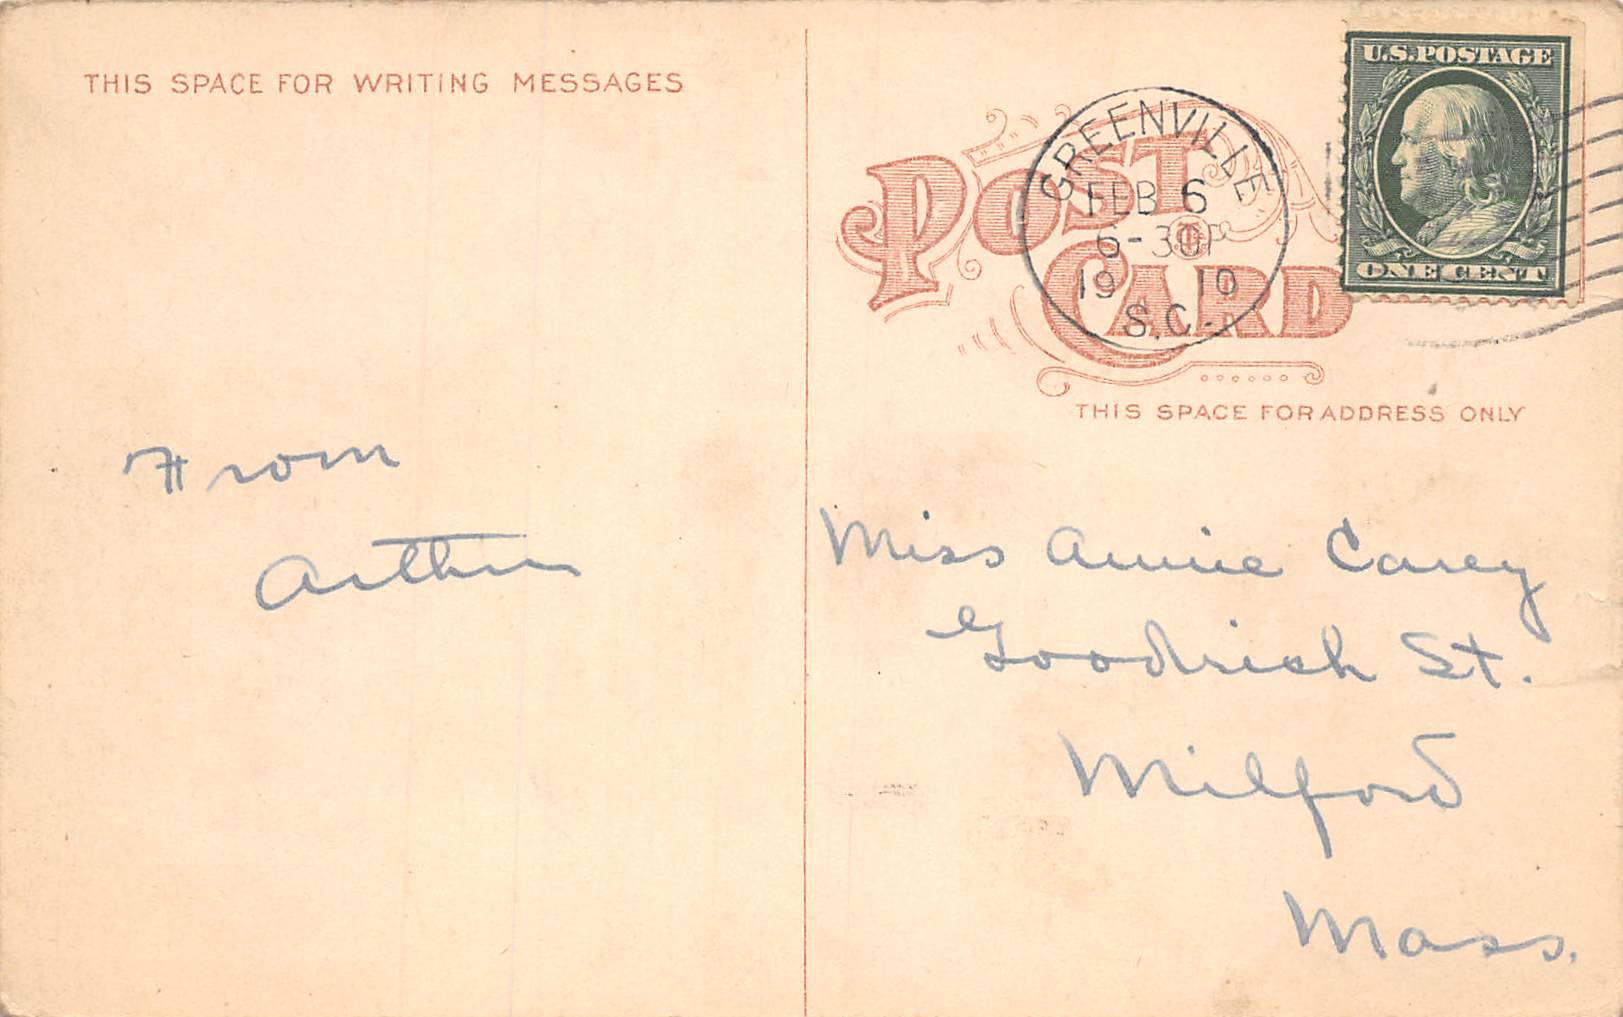 THIS SPACE FOR WRITING MESSAGES
From
Arthur
U.S. POSTAGE
ONE CENT
GREENVILLE
FEB 6
6-30P
1910
S.C.
POST CARD
THIS SPACE FOR ADDRESS ONLY
Miss Annie Carey
Goodrich St.
Milford
Mass.